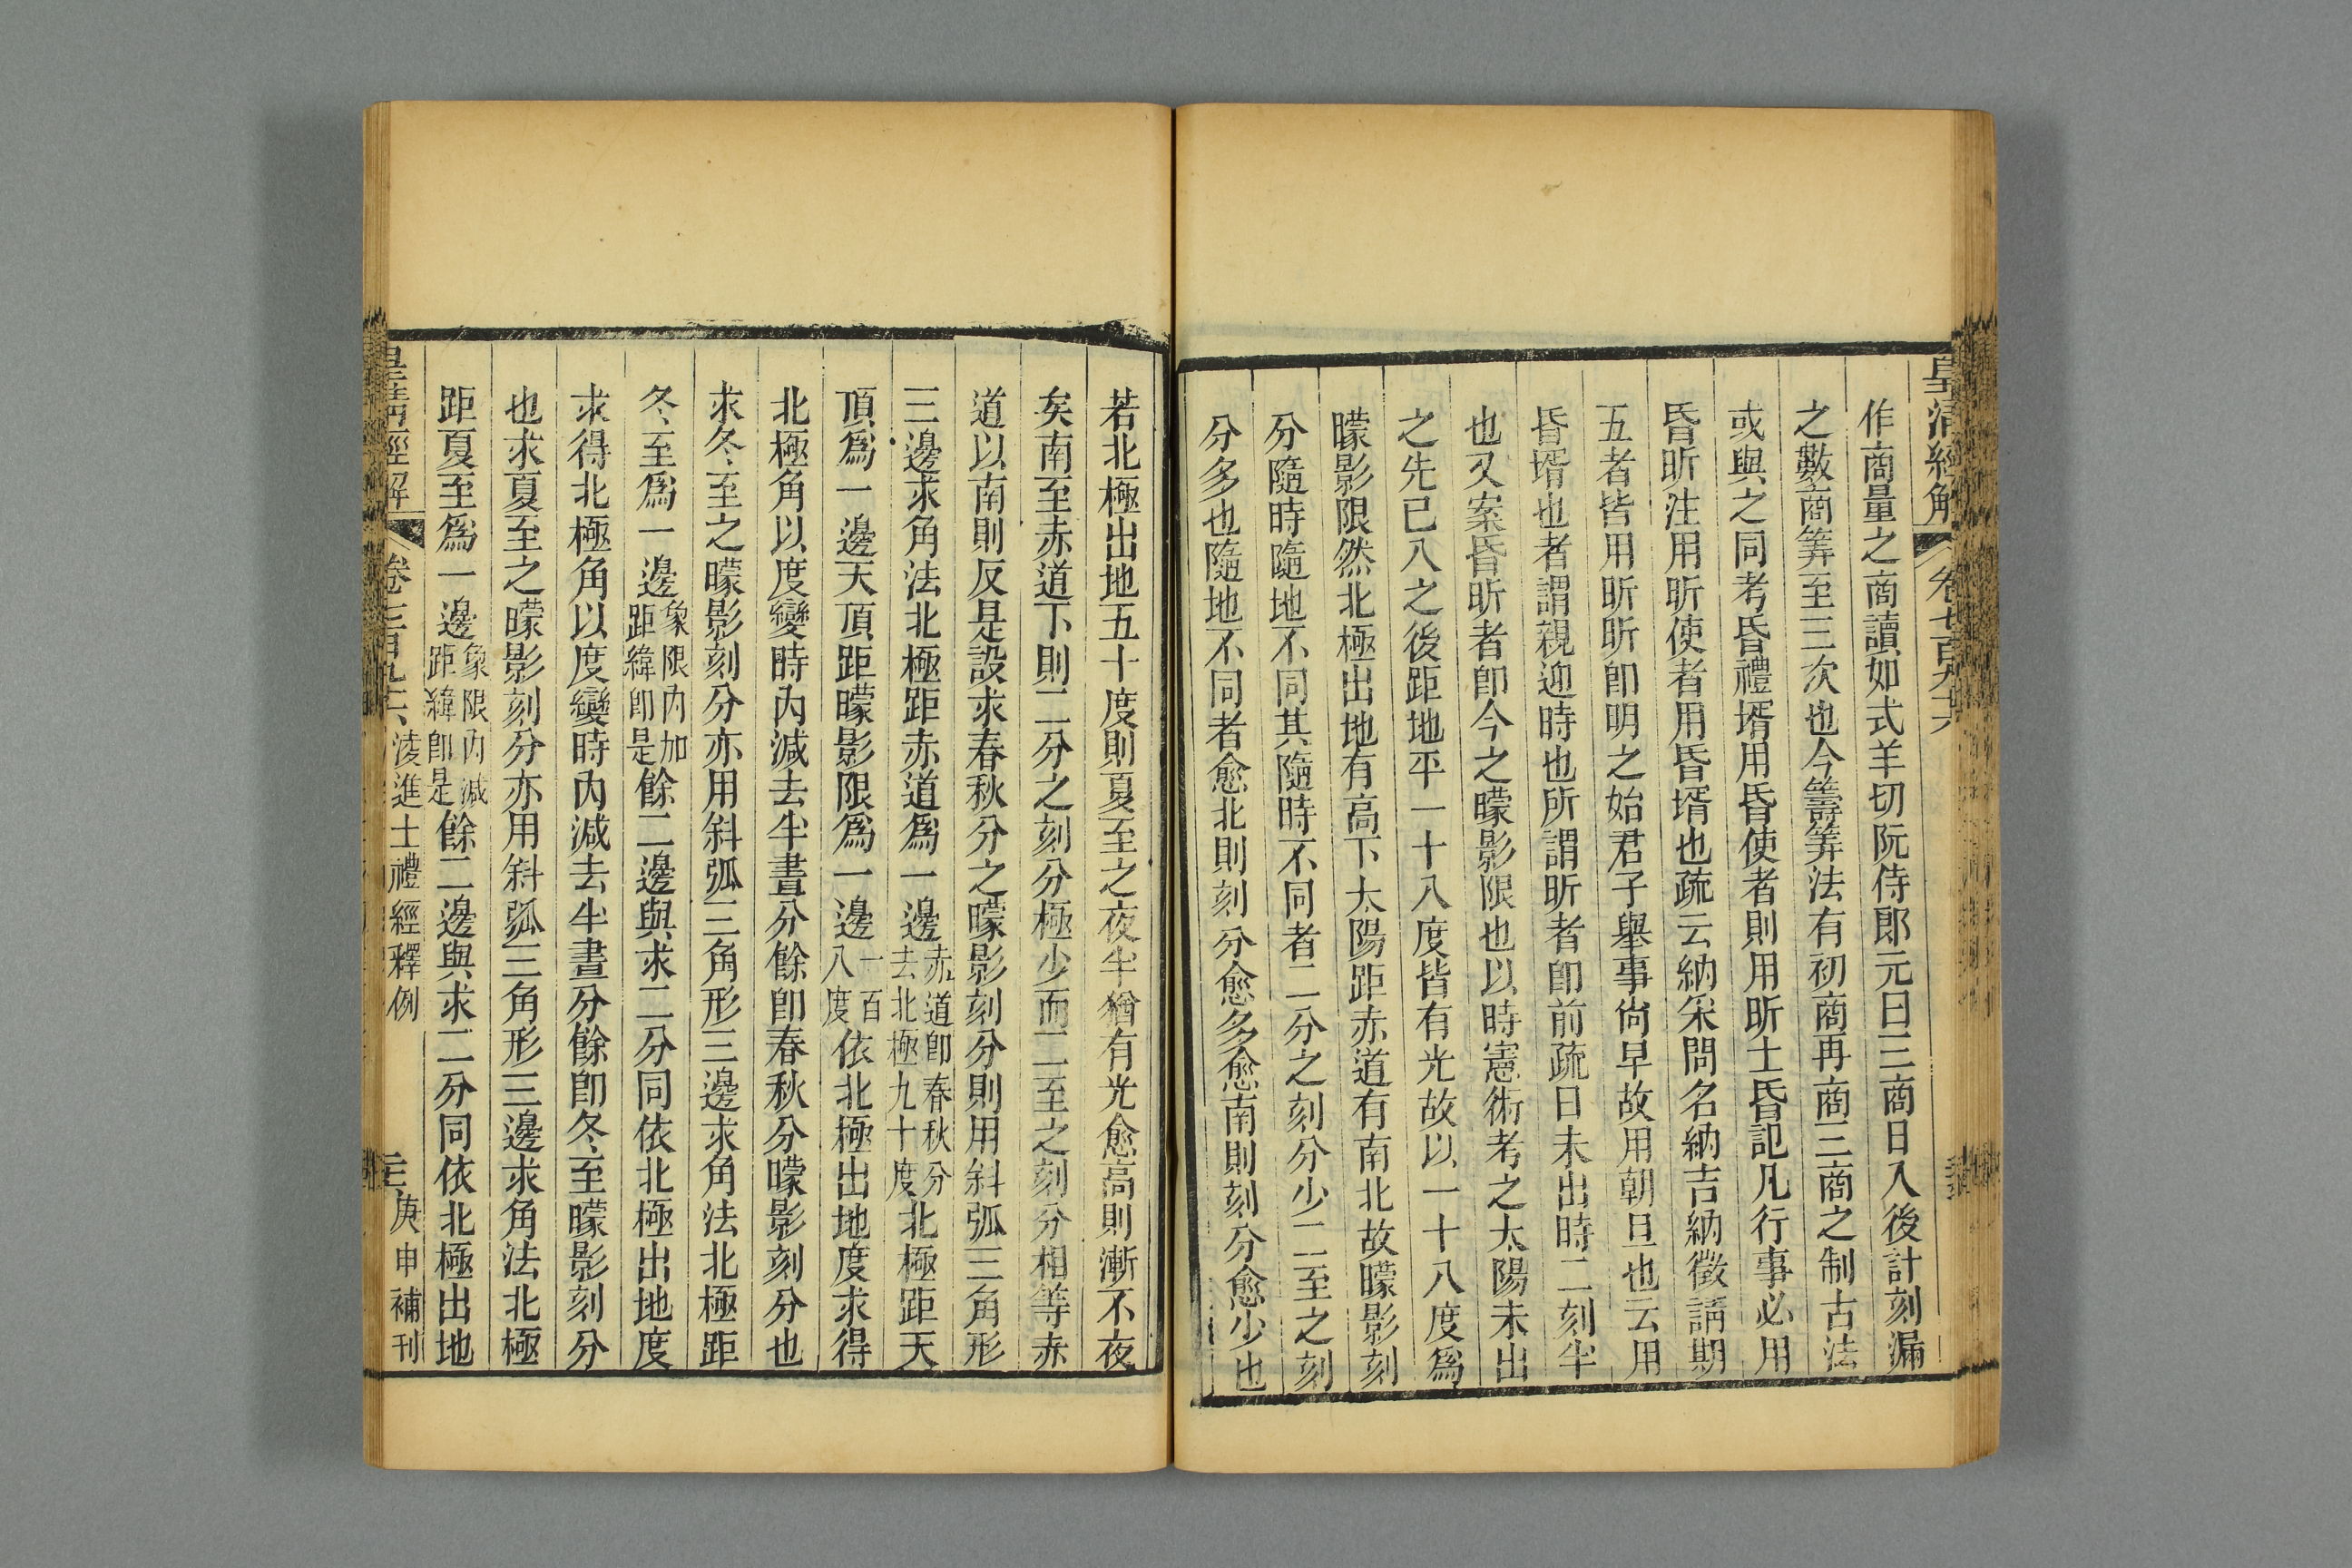 皇清經解
作商量之商讀如式羊切阮侍郎元曰三商日入後計刻漏
之數商筭至三次也今籌筭法有初商再商三商之制古法
或與之同考昏禮壻用昏使者則用昕士昏記凡行事必用
昏昕注用昕使者用昏壻也疏云納采問名納吉納徵請期
五者皆用昕昕卽明之始君子舉事尙早故用朝旦也云用
昏壻也者謂親迎時也所謂昕者卽前疏日未出時二刻半
也又案昏昕者卽今之曚影限也以時憲術考之太陽未出
之先已入之後距地平一十八度皆有光故以一十八度爲
曚影限然北極出地有高下太陽距赤道有南北故曚影刻
分隨時隨地不同其隨時不同者二分之刻分少二至之刻
分多也隨地不同者愈北則刻分愈多愈南則刻分愈少也
若北極出地五十度則夏至之夜半猶有光愈高則漸不夜
矣南至赤道下則二分之刻分極少而二至之刻分相等赤
道以南則反是設求春秋分之曚影刻分則用斜弧三角形
三邊求角法北極距赤道爲一邊赤道卽春秋分去北極九十度北極距天
頂爲一邊天頂距曚影限爲一邊一百八度依北極出地度求得
北極角以度變時內減去半晝分餘卽春秋分曚影刻分也
求冬至之曚影刻分亦用斜弧三角形三邊求角法北極距
冬至爲一邊象限內加距緯卽是餘二邊與求二分同依北極出地度
求得北極角以度變時內減去半晝分餘卽冬至曚影刻分
也求夏至之曚影刻分亦用斜弧三角形三邊求角法北極
距夏至爲一邊象限內減距緯卽是餘二邊與求二分同依北極出地
皇清經解 淩進士禮經釋例 庚申補刊